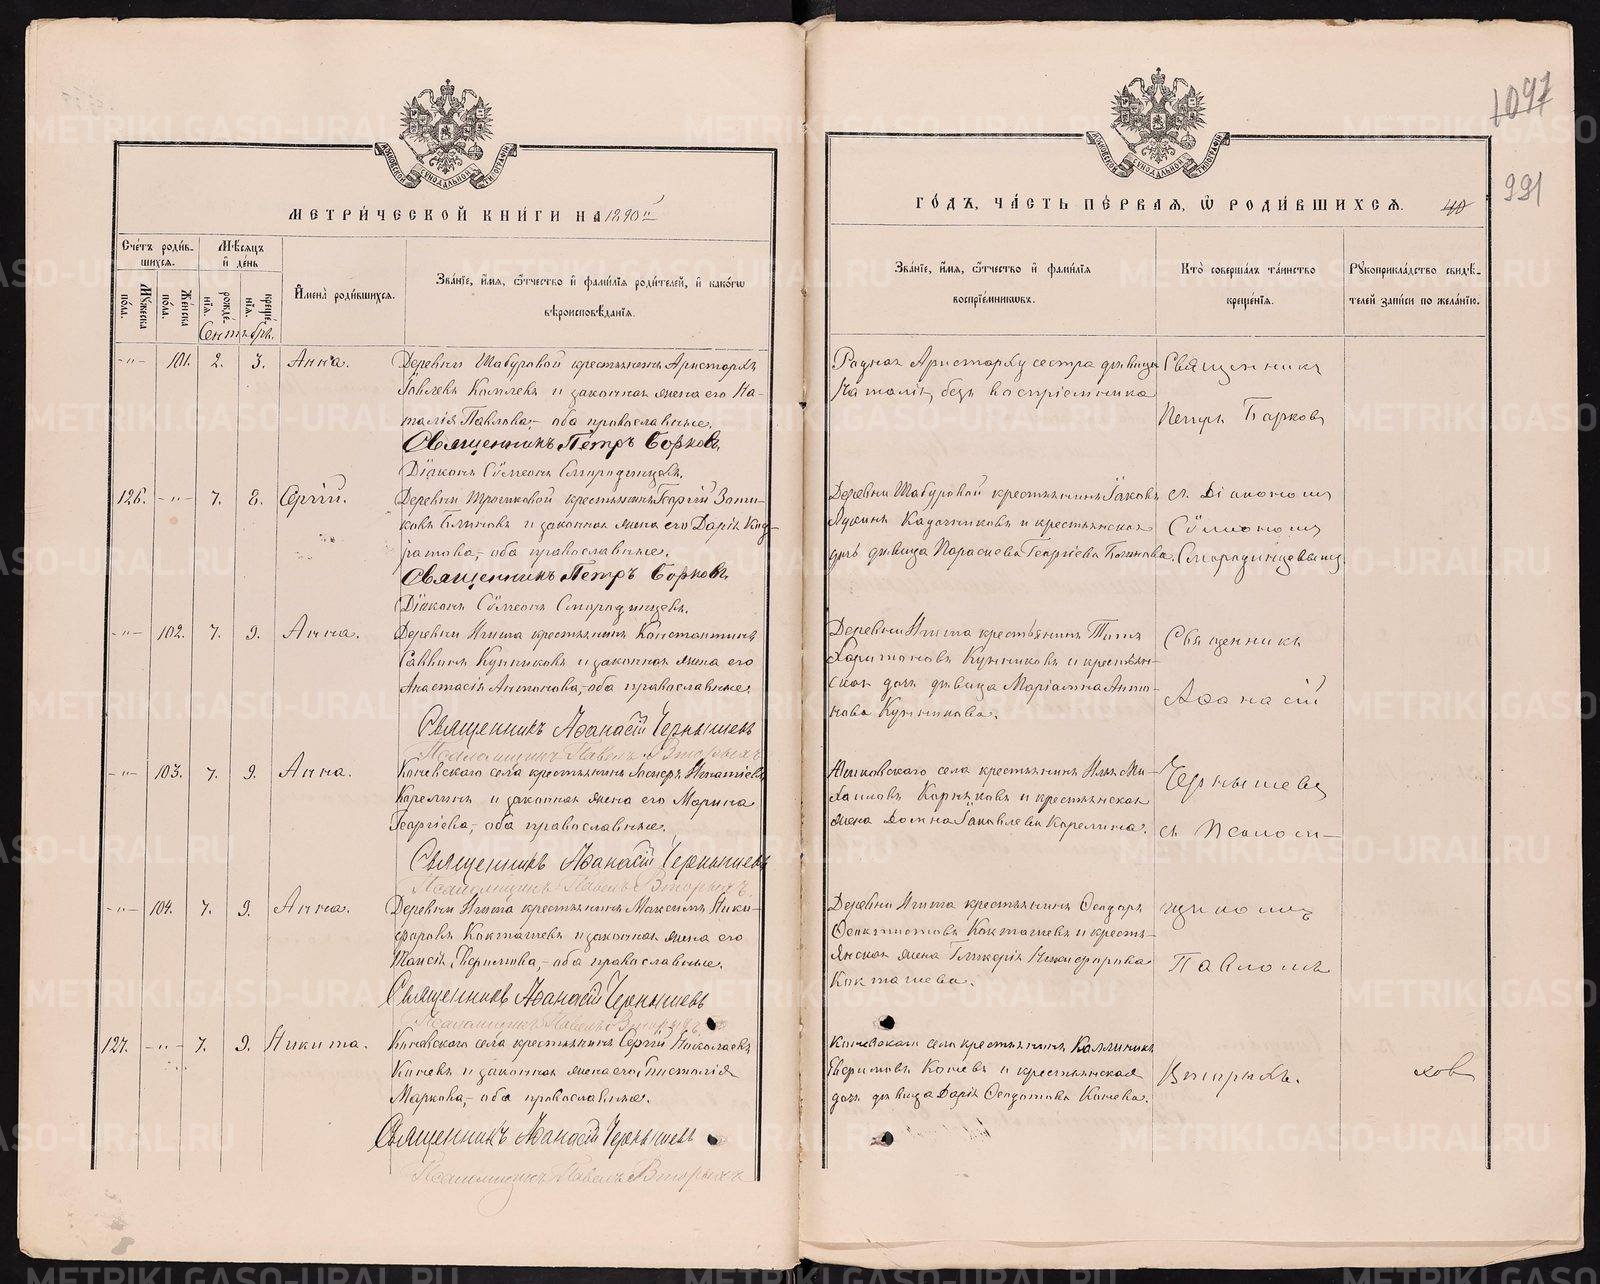 1097
991
МЕТРИ́ЧЕСКОЙ КНИ́ГИ НА 1890й
ГО́ДЪ, ЧА́СТЬ ПЕ́РВАЯ, Ѡ РОДИ́ВШИХСЯ. 40
Сче́тъ роди́в-шихся.
Мѣ́сяцъ и де́нь
Имена̀ роди́вшихся.
Зва́нїе, и́мя, ѻ́тчество и фами́лїя роди́телей, и како́гѡ вѣроисповѣ́данїя.
Мꙋ́жеска по́ла.
Же́нска по́ла.
рожде́нїя.
креще́нїя.
Сентябрь.
Зва́нїе, и́мя, ѻ́тчество и фами́лїя воспрїе́мниковъ.
Кто̀ соверша́лъ та́инство креще́нїя.
Рꙋкоприкла́дство свидѣ́телей за́писи по жела́нїю.
-"- 101. 2. 3. Анна.
Деревни Шабуровой крестьянинъ Аристархъ
Іовлевъ Комлевъ и законная жена его На-
талія Павлова,- оба православные.
Священникъ Петръ Борковъ
Діаконъ Сѷмеонъ Смородинцевъ.
Родная Аристарху сестра дѣвица
Наталія, безъ воспріемника
Священникъ
Петръ Борковъ
126. -"- 7. 8. Сергій.
Деревни крестьянинъ Георгій Зоти-
ковъ Блиновъ и законная жена его Дарія Код-
ратова,- оба православные.
Священникъ Петръ Борковъ.
Діаконъ Сѷмеонъ Смородинцевъ.
Деревни Шабуровой крестьянинъ Іаковъ
Кадочниковъ и крестьянская
дочь дѣвица Параскева Георгіева Блинова.
съ Діакономъ
Сѷмеономъ
Смородинцевымъ
-"- 102. 7. 9. Анна.
Деревни крестьянинъ Константинъ
Саввинъ и законная жена его
Анастасія Антонова,- оба православные.
Священникъ Аѳанасій Чернышевъ
Псаломщикъ Павелъ Вторыхъ
Деревни крестьянинъ Титъ
Харитоновъ и крестьян-
ская дочь дѣвица Маріамна Анто-
нова
Священникъ
Аѳанасій
-"- 103. 7. 9. Анна.
Коневскаго села крестьянинъ Игнатіевъ
Карелинъ и законная жена его Марина
Георгіева,- оба православные.
Священникъ Аѳанасій Чернышевъ
Псаломщикъ Павелъ Вторыхъ
села крестьянинъ Илья Ми-
хаиловъ и крестьянская
жена Домна Іаковлева Карелина.
Чернышевъ
съ Псалом-
-"- 104. 7. 9. Анна.
Деревни крестьянинъ Максимъ Ники-
форовъ Кокташевъ и законная жена его
Таисія оба православные.
Священникъ Аѳанасій Чернышевъ
Псаломщикъ Павелъ Вторыхъ
Деревни крестьянинъ Ѳеодоръ
Ѳеоктистовъ Кокташевъ и кресть-
янская жена Гликерія Никифорова
Кокташева.
щикомъ
Павломъ
127. -"- 7. 9. Никита.
Коневскаго села крестьянинъ Сергій Николаевъ
Коневъ и законная жена его
Маркова,- оба православные.
Священникъ Аѳанасій Чернышевъ
Псаломщикъ Павелъ Вторыхъ
Коневскаго села крестьянинъ Каллиникъ
Коневъ и крестьянская
дочь дѣвица Дарія Ѳеодотова Конева.
Вторыхъ.
ховъ